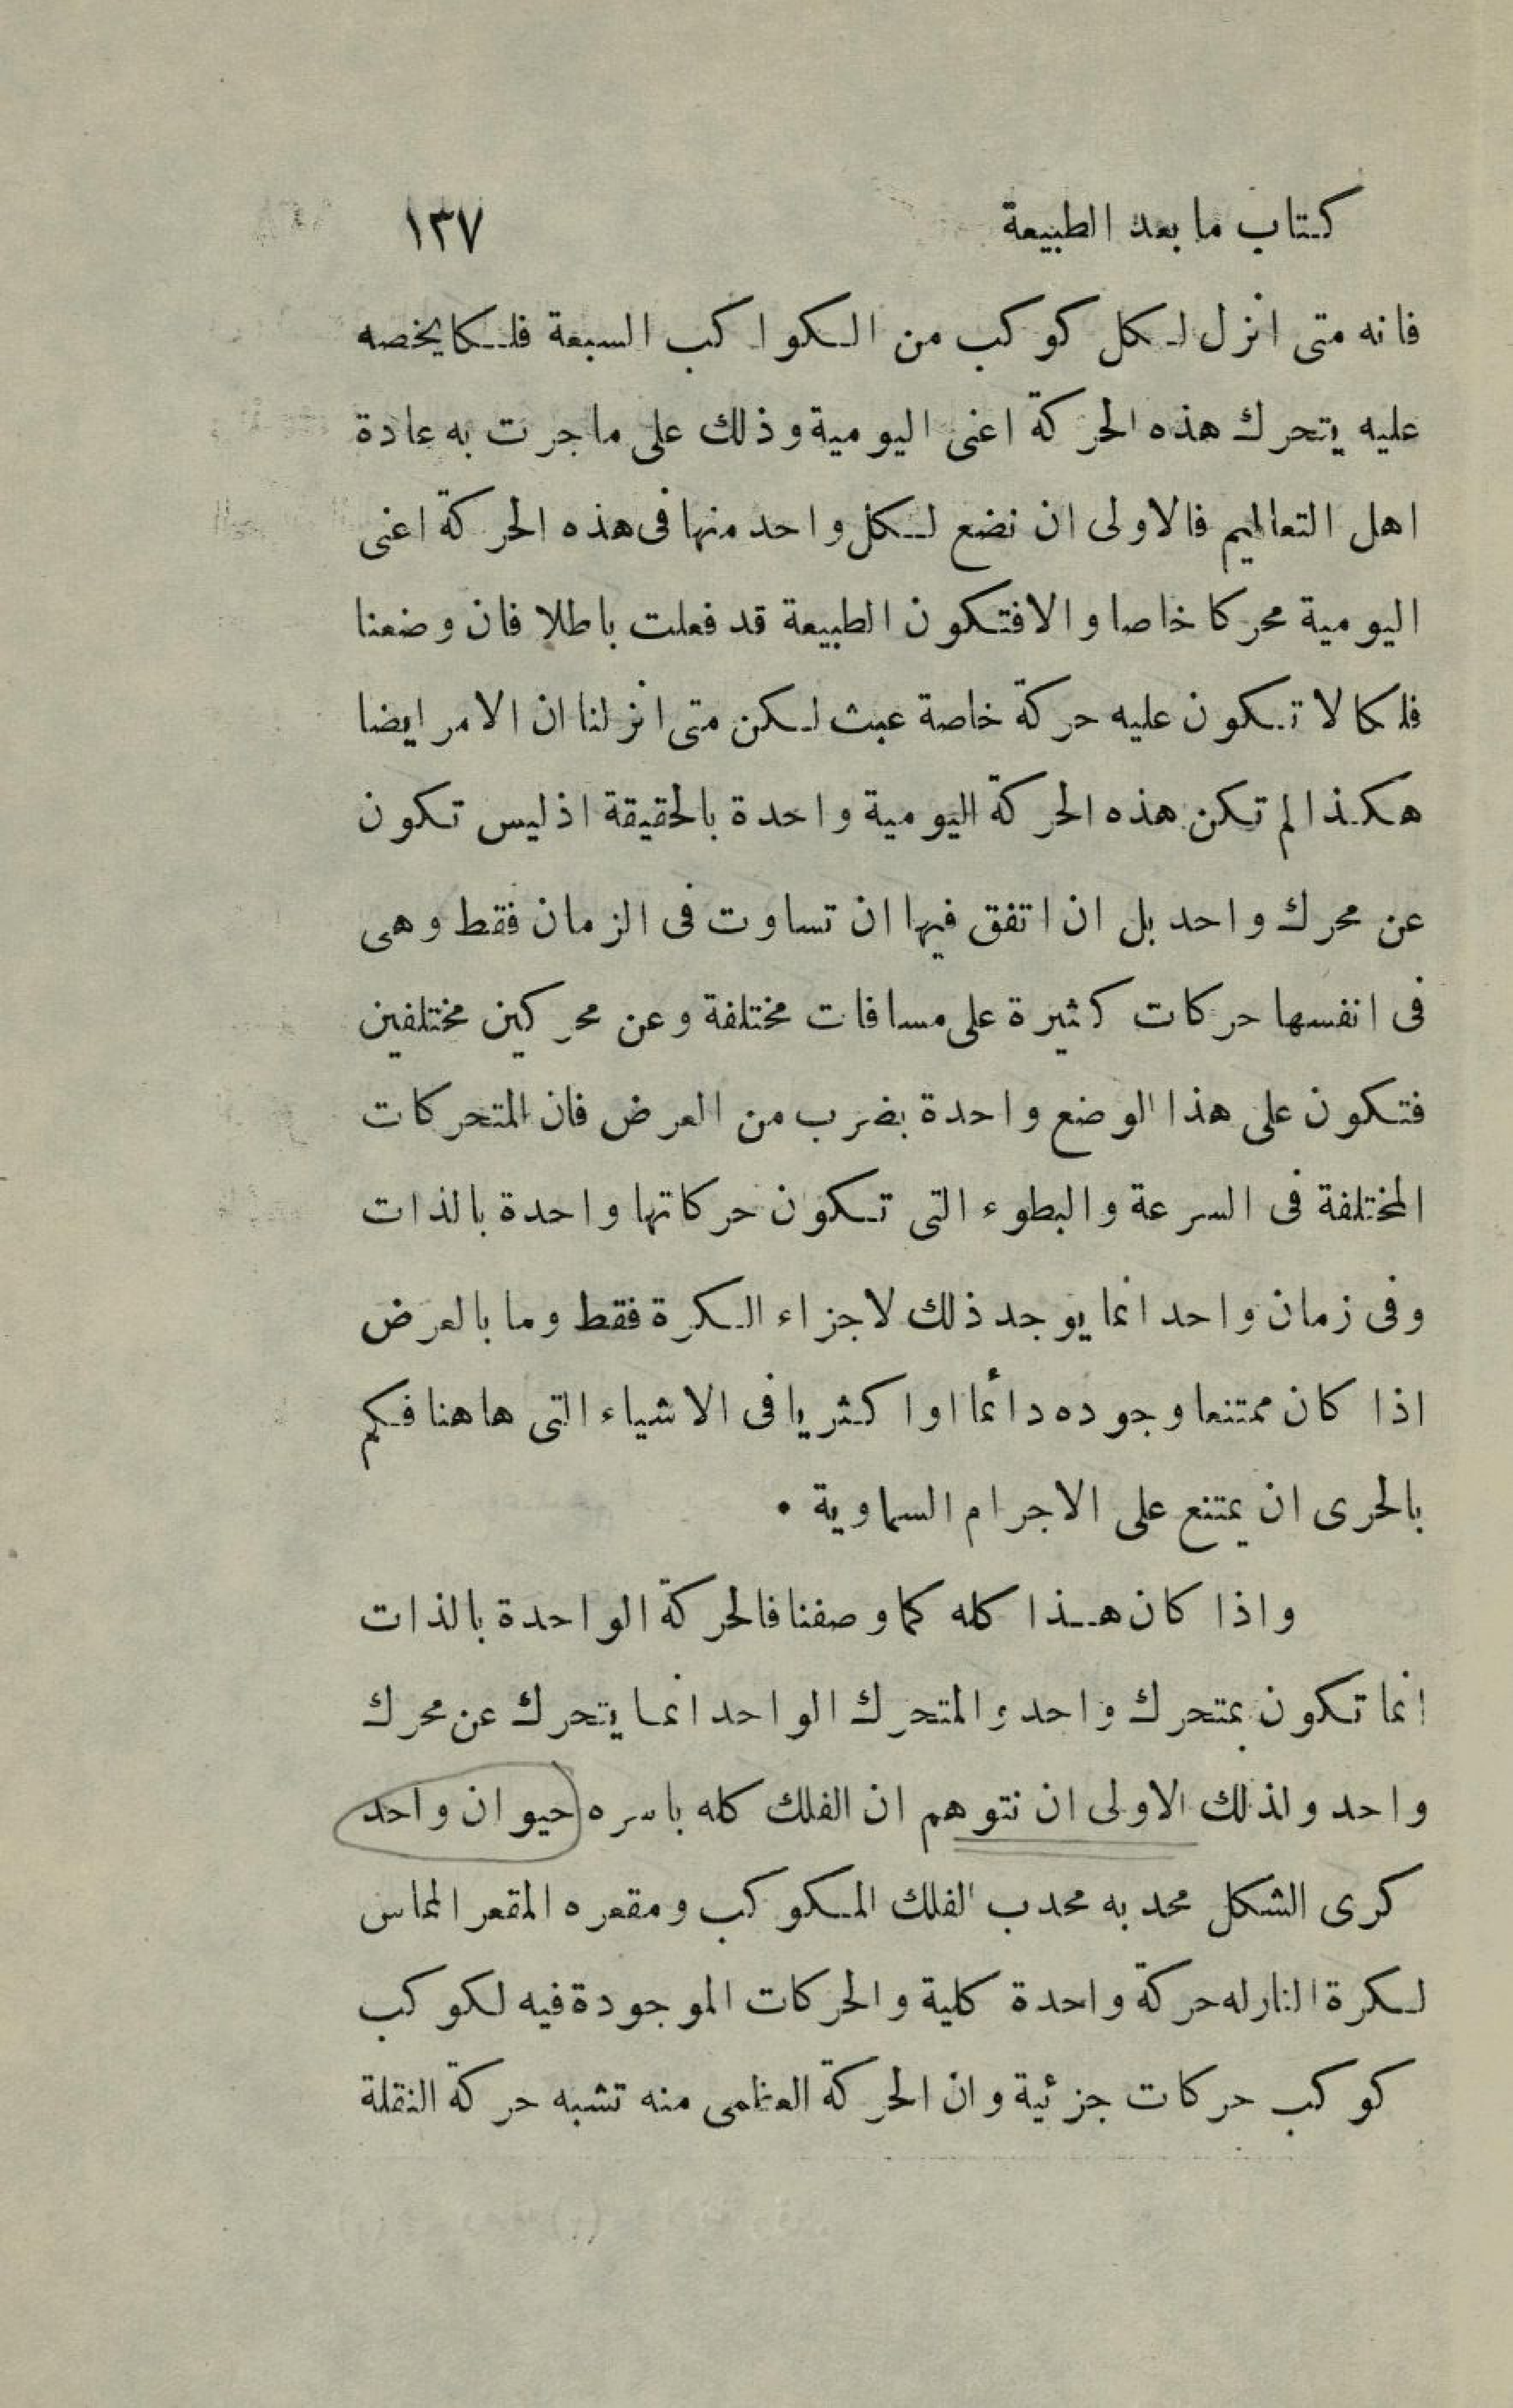 كتاب ما بعد الطبيعة ١٣٧
فانه متى انزل لكل كوكب من الكواكب السبعة فلكا يخصه
عليه يتحرك هذه الحركة اعنى اليومية وذلك على ما جرت به عادة
اهل التعاليم فالاولى ان نضع لكل واحد منها فى هذه الحركة اعنى
اليومية محركا خاصا والا فتكون الطبيعة قد فعلت باطلا فان وضعنا
فلكا لا تكون عليه حركة خاصة عبث لكن متى انزلنا ان الامر ايضا
هكذا لم تكن هذه الحركة اليومية واحدة بالحقيقة اذ ليس تكون
عن محرك واحد بل ان اتفق فيها ان تساوت فى الزمان فقط وهى
فى انفسها حركات كثيرة على مسافات مختلفة وعن محركين مختلفين
فتكون على هذا الوضع واحدة بضرب من العرض فان المتحركات
المختلفة فى السرعة والبطوء التى تكون حركاتها واحدة بالذات
وفى زمان واحد انما يوجد ذلك لاجزاء الكرة فقط وما بالعرض
اذا كان ممتنعا وجوده دائما او اكثريا فى الاشياء التى هاهنا فكم
بالحرى ان يمتنع على الاجرام السماوية ٠
واذا كان هذا كله كما وصفنا فالحركة الواحدة بالذات
انما تكون بمتحرك واحد والمتحرك الواحد انما يتحرك عن محرك
واحد ولذلك الاولى ان نتوهم ان الفلك كله باسره حيوان واحد
كرى الشكل محدبه محدب الفلك المكوكب ومقعره المقعر المماس
لكرة النار له حركة واحدة كلية والحركات الموجودة فيه لكوكب
كوكب حركات جزئية وان الحركة العظمى منه تشبه حركة النقلة